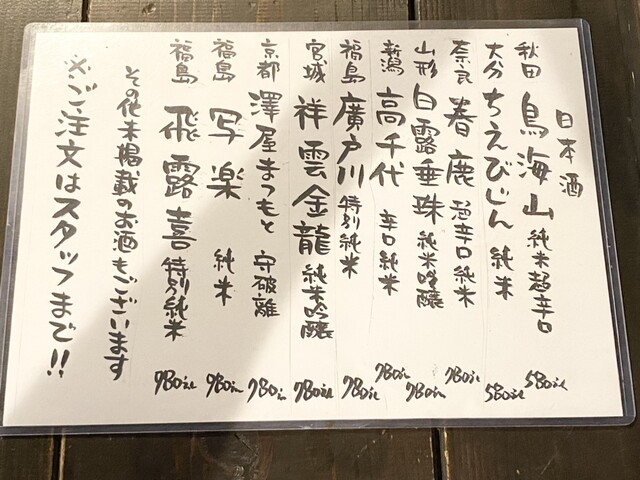 日本酒
秋田 鳥海山 純米超辛口 580-
大分 ちえびじん 純米 580-
奈良 春鹿 超辛口純米 780-
山形 白露垂珠 純米吟醸 780-
新潟 高千代 辛口純米 780-
福島 廣戸川 特別純米 780-
宮城 祥雲金龍 純米吟醸 780-
京都 澤屋まつもと 守破離 780-
福島 写楽 純米 980-
福島 飛露喜 特別純米 980-
その他未掲載のお酒もございます
※ご注文はスタッフまで!!